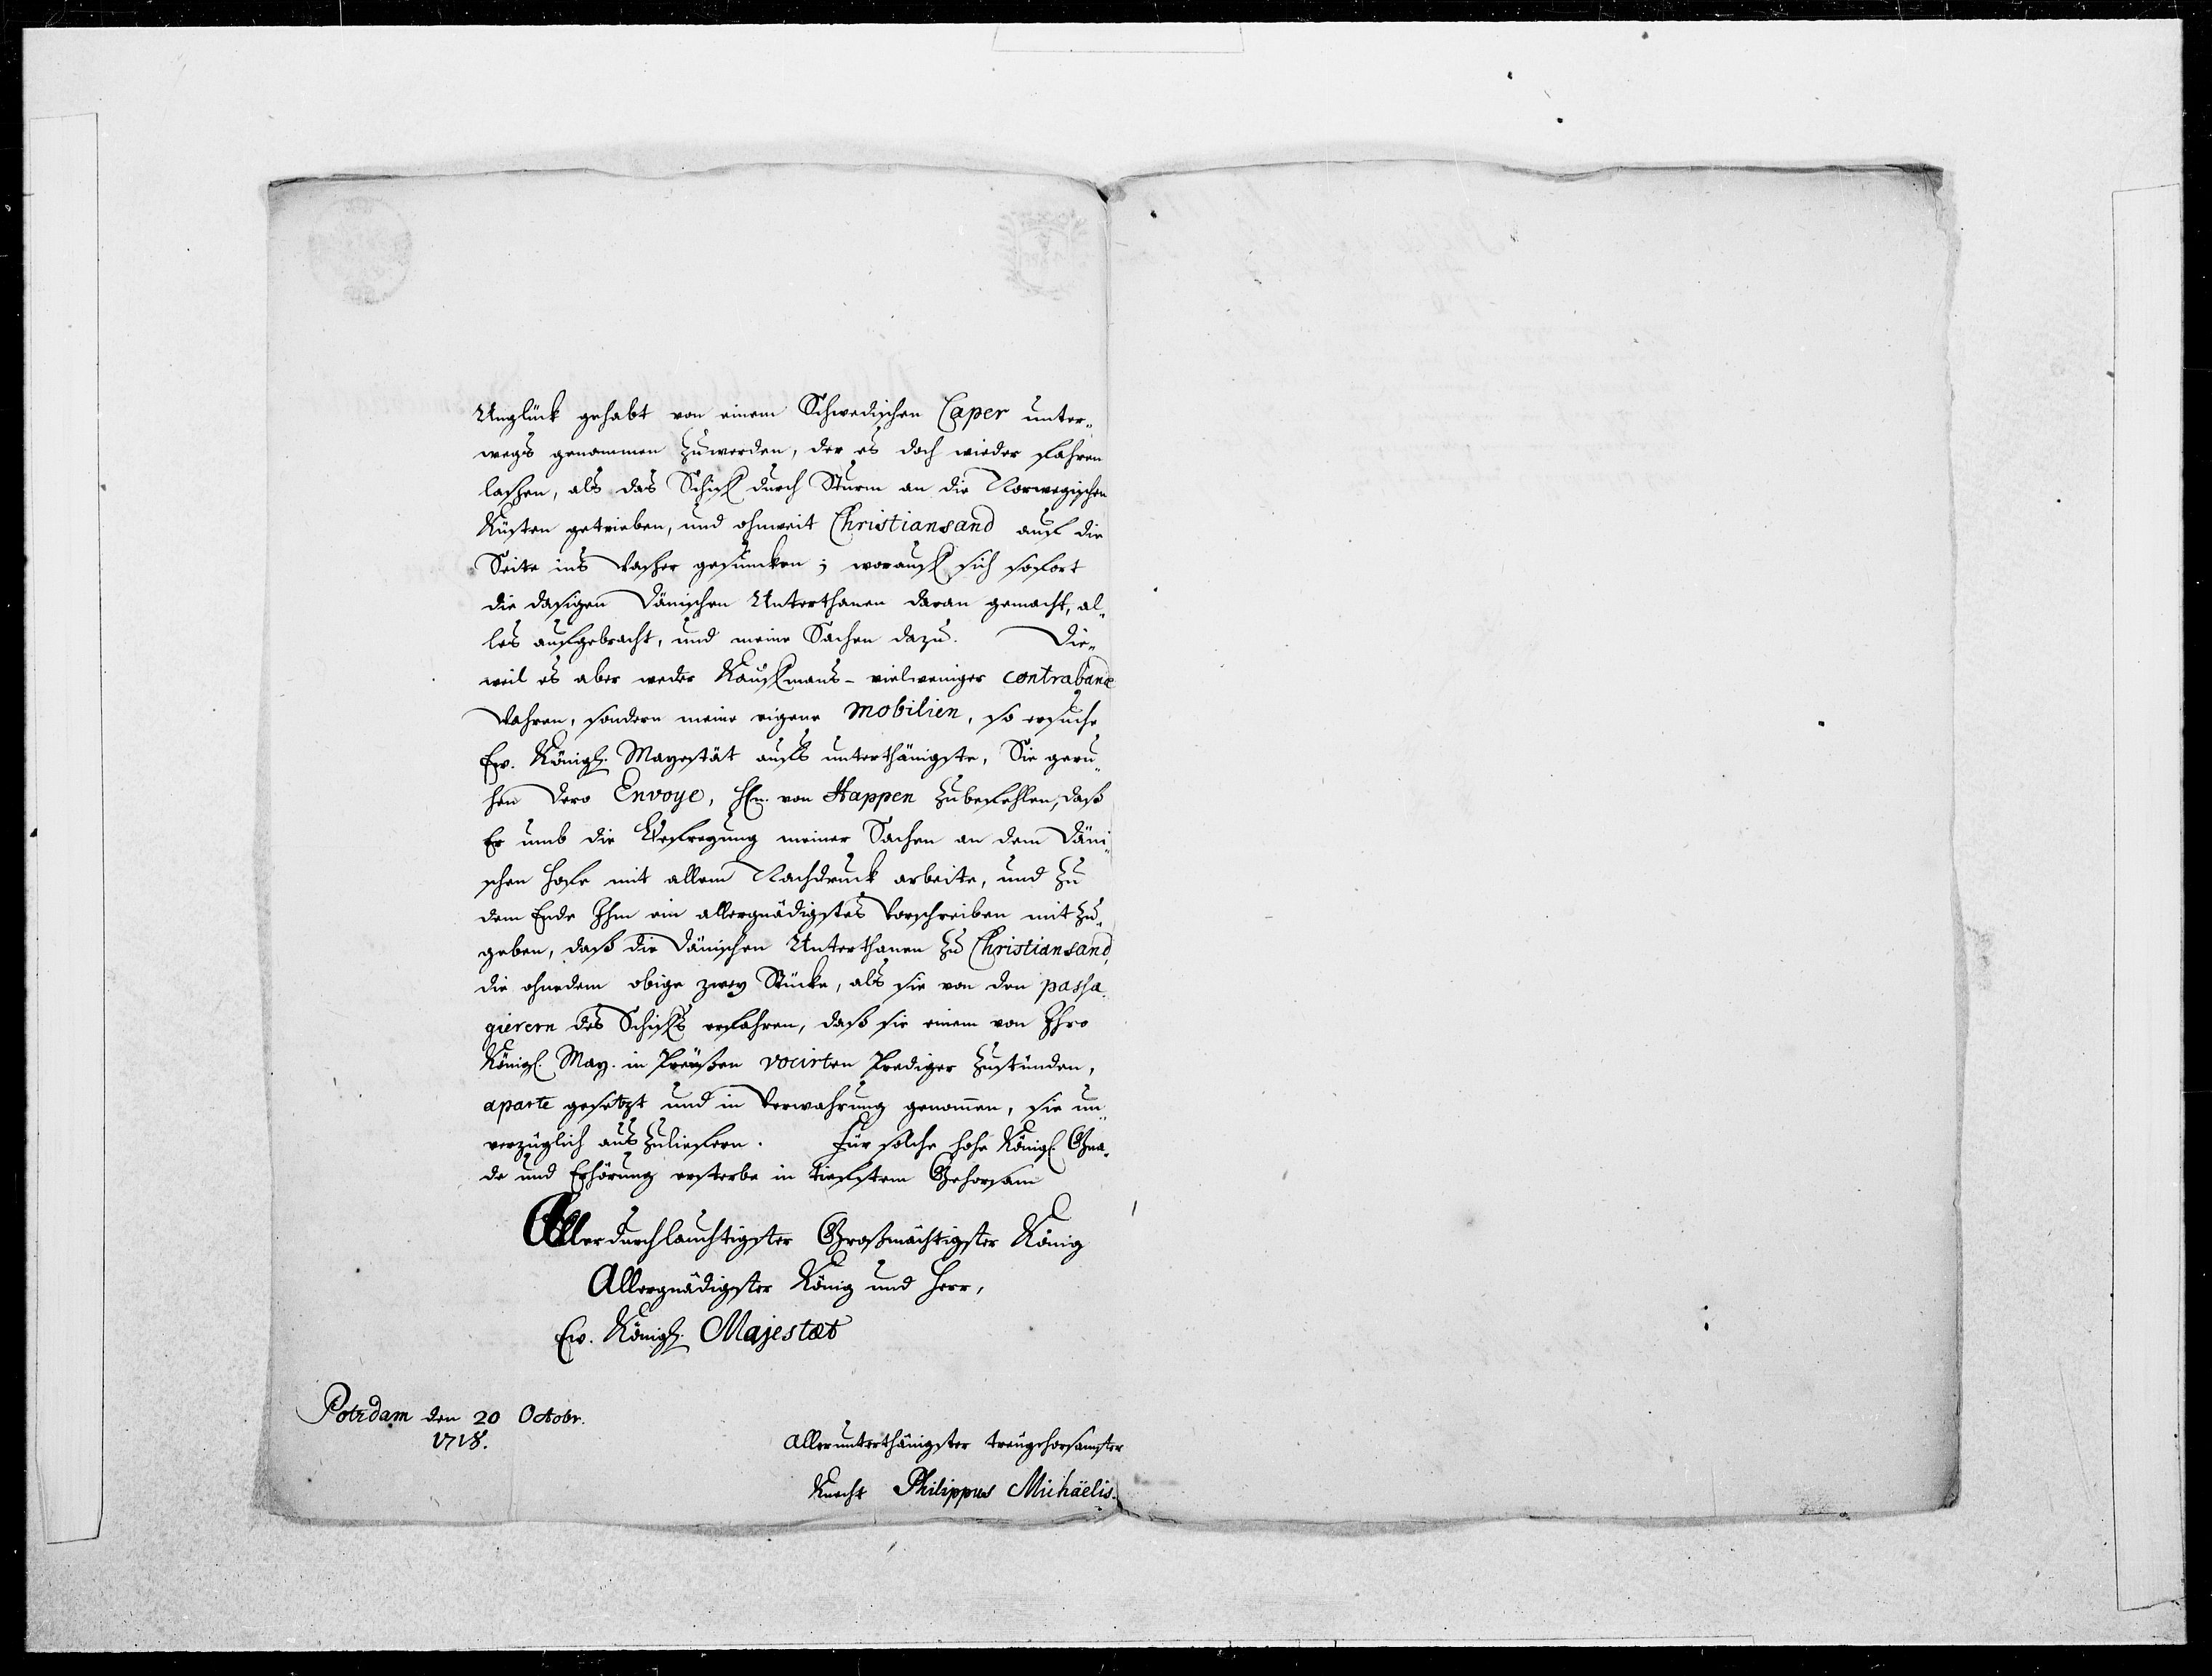 Unglück gehabt von einem Schwedischen Caper unter„
wegs genommen zu werden, der es doch wieder fahren
laßen, als das Schiff durch Sturm an die Norwegischen
Küsten getrieben, und ohnweit Christiansand auf die
Seite ins Waßer gesuncken; worauf sich sofort
die dasigen Dänischen Unterthanen daran gemacht, al„
les aufgebracht, und meine Sachen dazu. Die„
weil es aber weder Kauffmans- vielweniger contrabande
Wahren, sondern meine eigene Mobilien, so ersuche
Ew. Königl. Mayestät aufs unterthänigste, Sie geru„
hen Dero Envoye, Hn. von Happen zu befehlen, daß
Er umb die Befreyung meiner Sachen an dem Däni„
schen Hofe mit allem Nachdruck arbeite, und zu
dem Ende Ihm ein allergnädigstes Vorschreiben mit zu„
geben, daß die Dänischen Unterthanen zu Christiansand,
die ohnedem obige zwey Stücke, als sie von den passa„
gierern des Schiffs erfahren, daß sie einem von Ihro
Königl. May. in Preußen vocirten Prediger zustünden,
aparte gesetzt und in Verwahrung genom̄en, sie un„
verzüglich aus zuliefern. Für solche hohe Königl. Gna„
de und Erhörung ersterbe in tieffstem Gehorsam
Allerdurchlauchtigster Großmächtigster König
Allergnädigster König und Herr,
Ew. Königl. Majestæt
Potzdam den 20 Octobr.
1718.
Allerunterthänigster treugehorsamster
Knecht Philippus Michäelis.